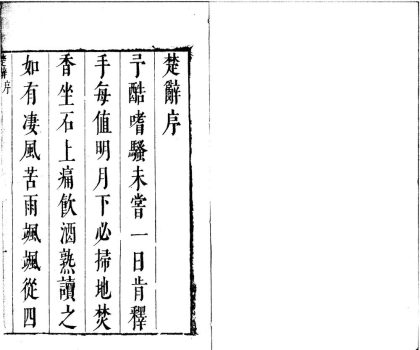 楚辭序
予酷嗜騷未嘗一日肯釋
手每值明月下必掃地焚
香坐石上痛飲酒熟讀之
如有淒風苦雨颯颯從四
楚辭序